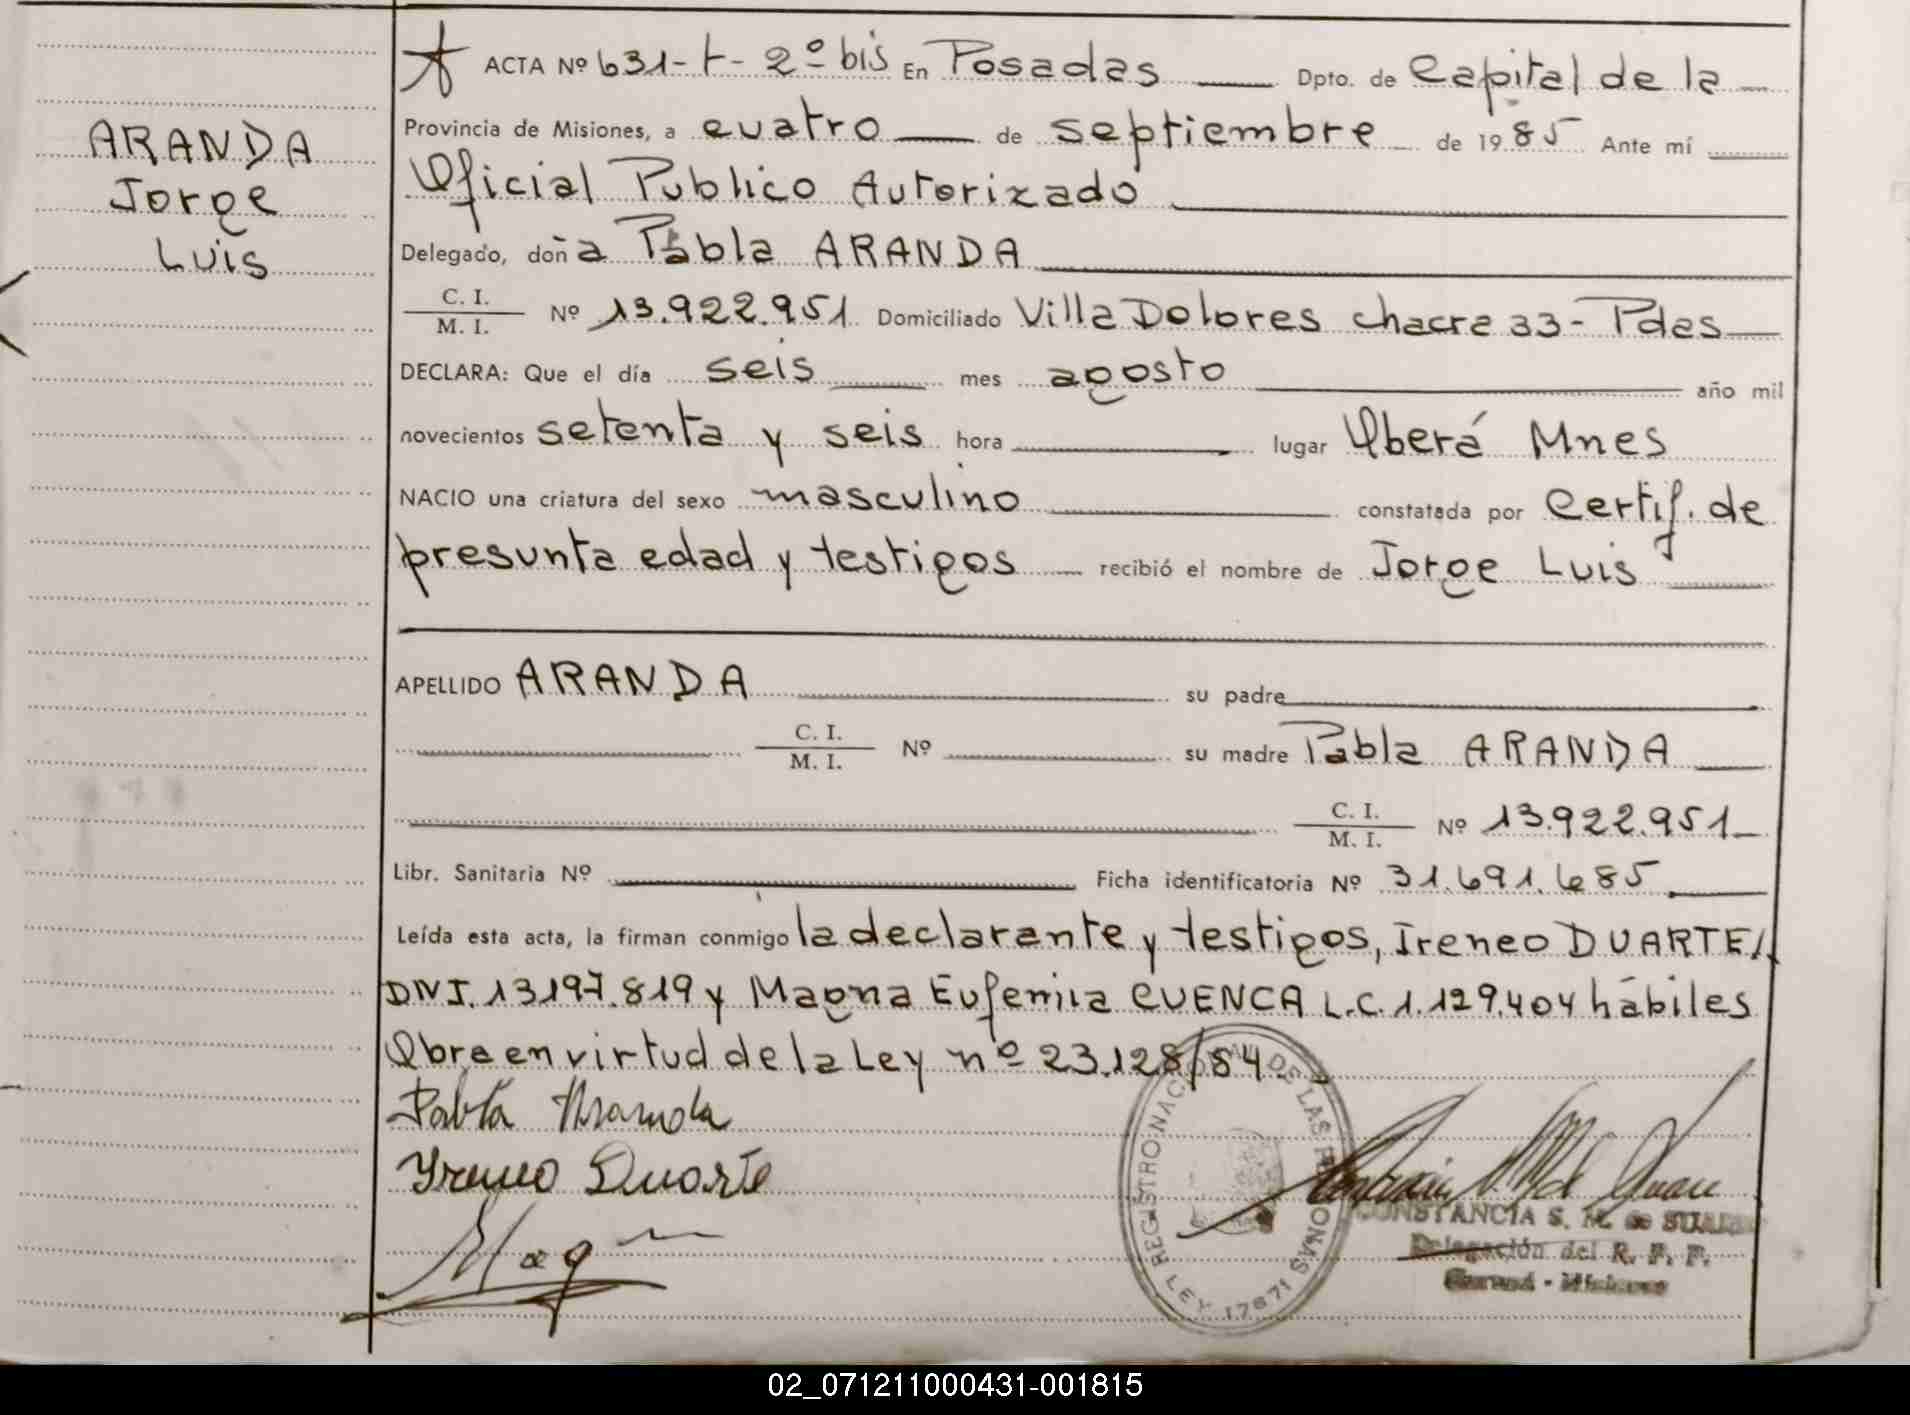 ARANDA
Jorge
Luis
ACTA Nº 631-t-2º bis En Posadas Dpto. de Capital de la
Provincia de Misiones, a cuatro de septiembre de 1985 Ante mí
Oficial Publico Autorizado
Delegado, doña Pabla ARANDA
C. I. / M. I. Nº 13.922.951 Domiciliado Villa Dolores chacra 33- Pdas
DECLARA: Que el día seis mes agosto año mil
novecientos setenta y seis hora lugar Oberá Mnes
NACIO una criatura del sexo masculino constatada por Certif. de
presunta edad y testigos recibió el nombre de Jorge Luis
APELLIDO ARANDA su padre
C. I. / M. I. Nº su madre Pabla ARANDA
C. I. / M. I. Nº 13.922.951
Libr. Sanitaria Nº Ficha identificatoria Nº 31.691.685
Leída esta acta, la firman conmigo la declarante y testigos, Ireneo DUARTE/.
DNI. 13197.819 y Magna Eufemia CUENCA L.C. 1.129.404 hábiles
Obra en virtud de la Ley nº 23.128/84.
Pabla Aranda
Ireneo Duarte
Mag
REGISTRO NACIONAL DE LAS PERSONAS
LEY 17671
CONSTANCIA S. M. de
Delegación del R. P. P.
02_071211000431-001815